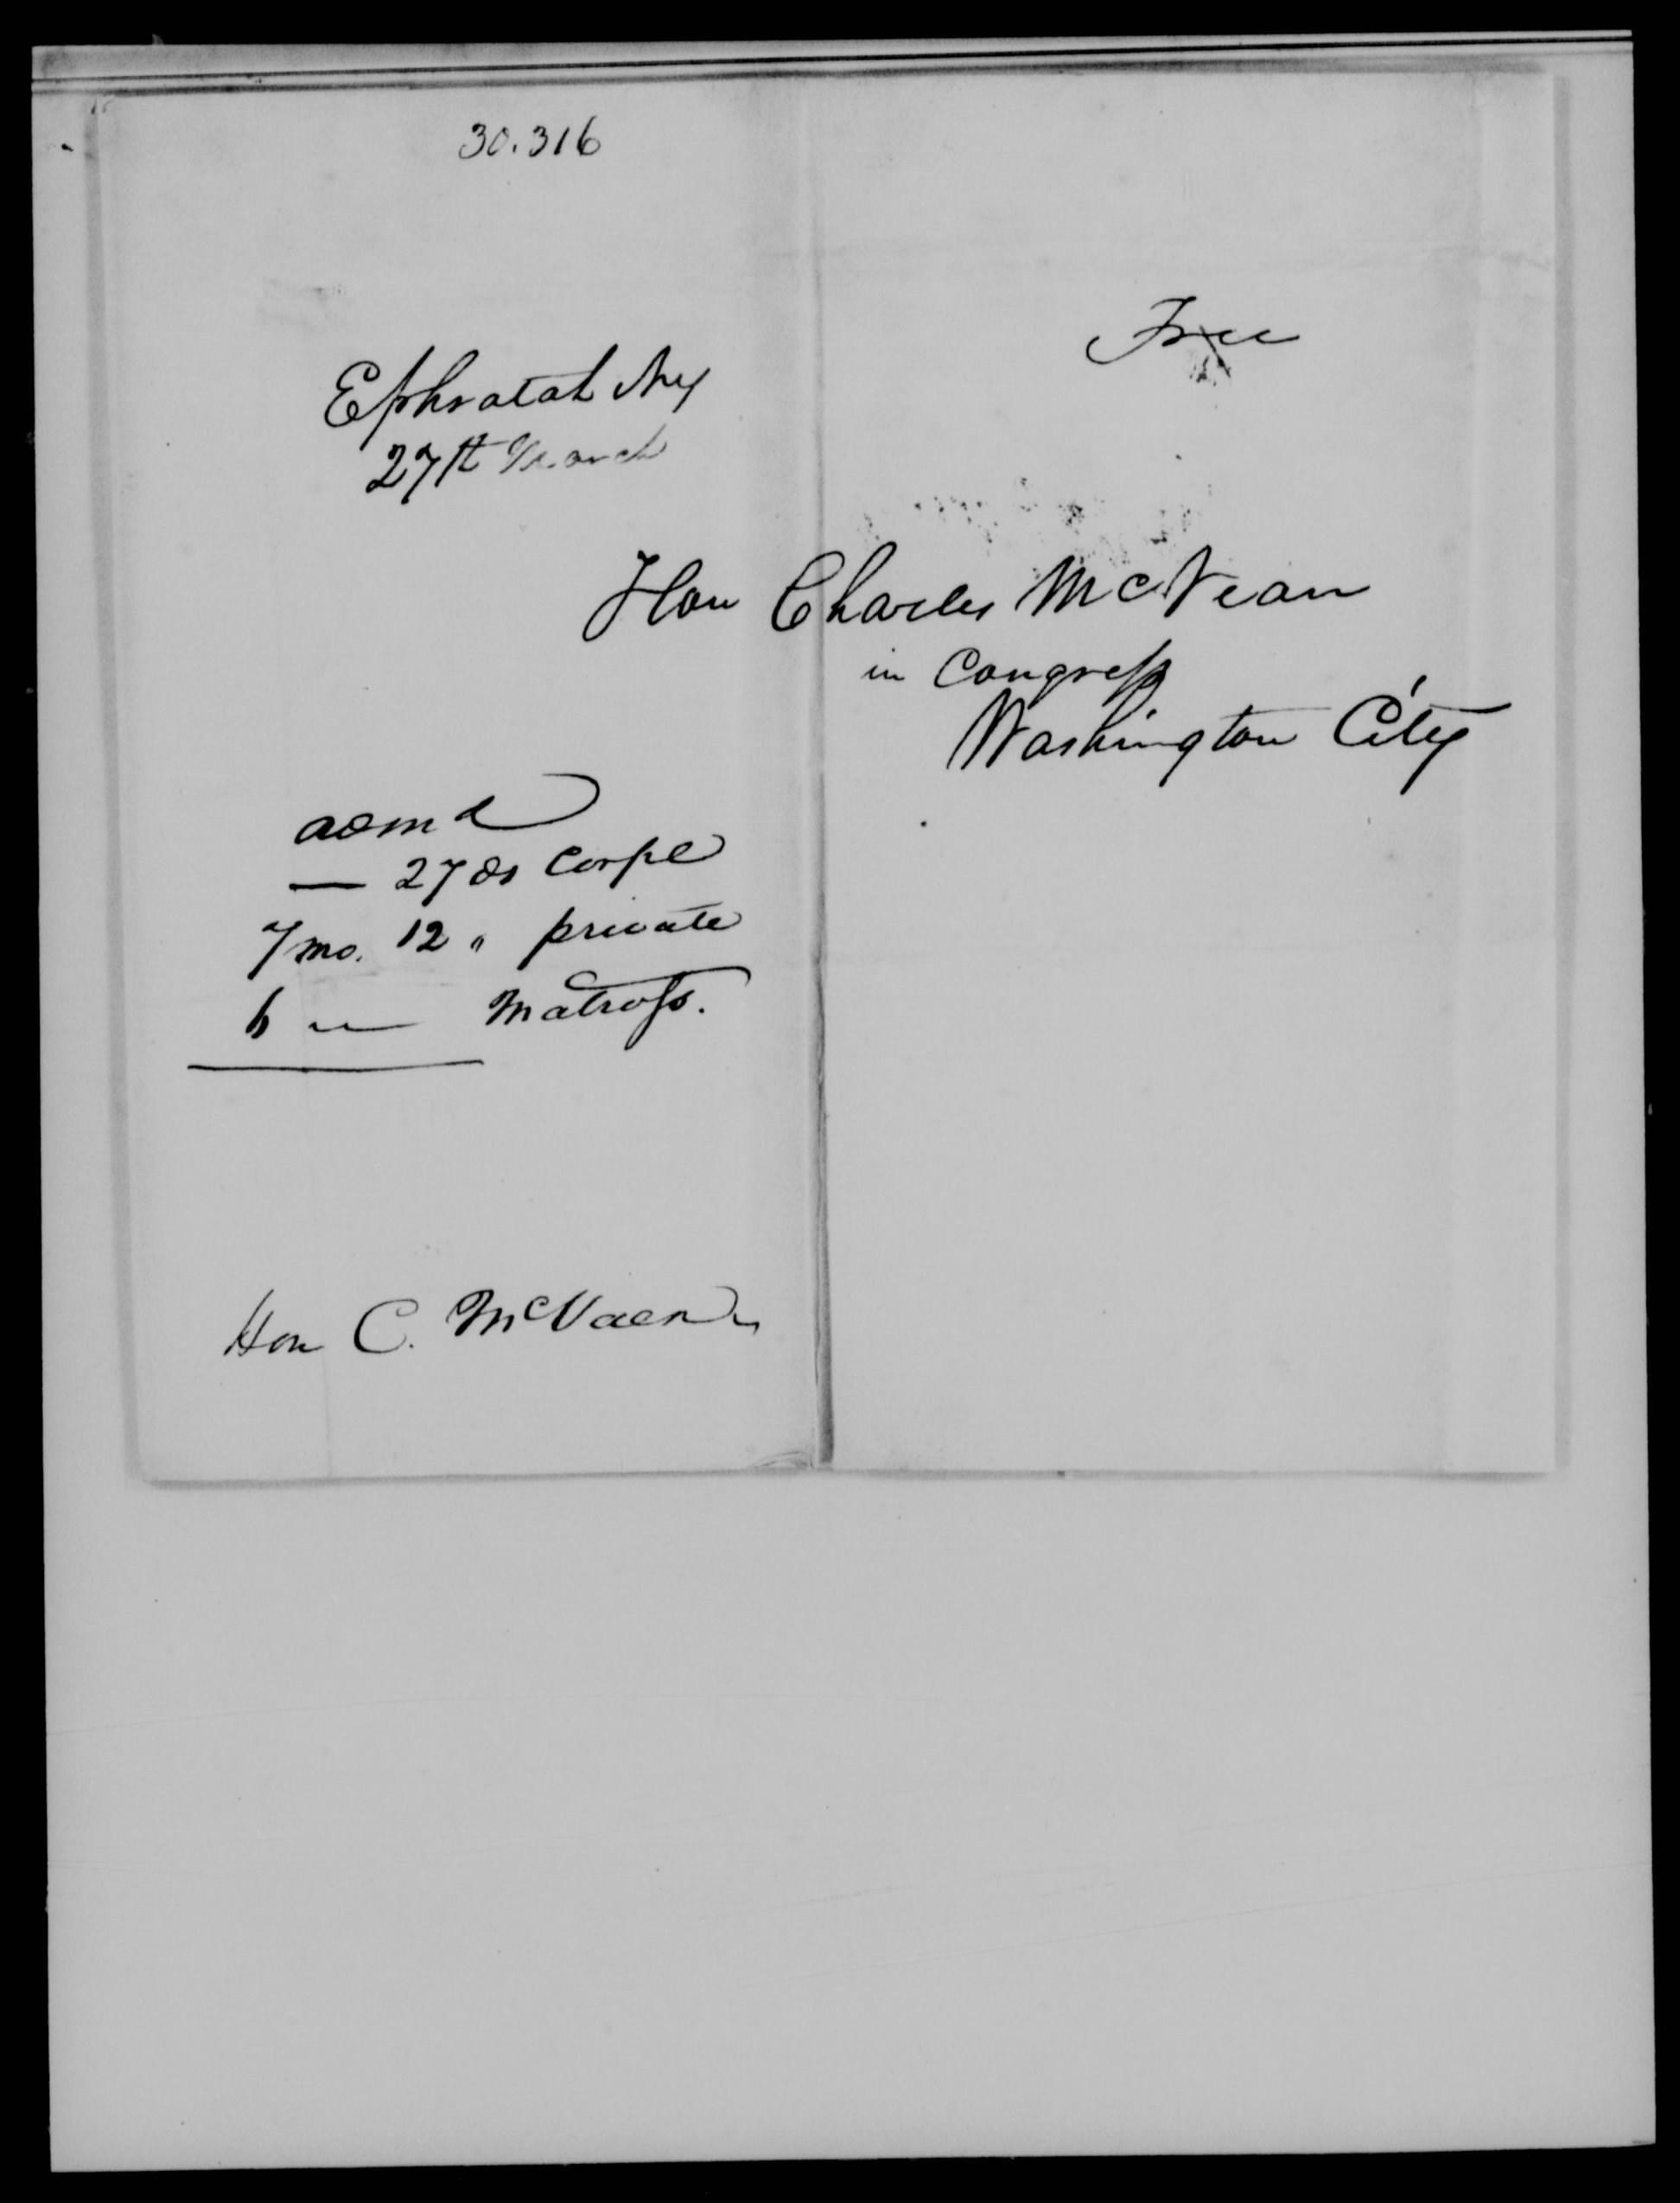 30.316
Free
Ephratah Ny
27th March
Hon Charles McVean
in Congress
Washington City
adm d
— 27 ds Corpl
7 mo. 12 " private
6 " — Matross.
Hon C. McVaen